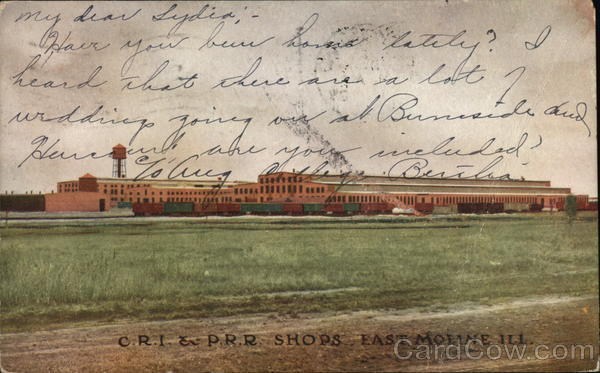 My dear Lydia;-
Have you been home lately? I
heard that there are a lot of
weddings going on at Burnside and
are you included?
% Aug College. Bertha
C.R.I. & P.R.R. SHOPS. EAST MOLINE ILL.
CardCow.com